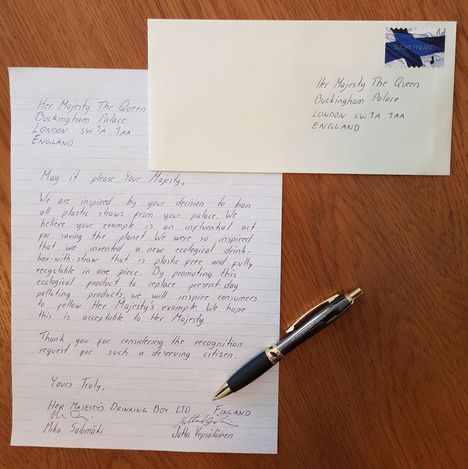 SUOMI FINLAND
Her Majesty The Queen
Buckingham Palace
LONDON SW1A 1AA
ENGLAND
Her Majesty The Queen
Buckingham Palace
LONDON SW1A 1AA
ENGLAND
May it please Your Majesty,
We are inspired by your decision to ban
all plastic straws from your palace. We
believe your example is an influential act
for saving the planet. We were so inspired
that we invented a new ecological drink-
box-with-straw that is plastic free and fully
recyclable in one piece. By promoting this
ecological product to replace present-day
polluting products, we will inspire consumers
to follow Her Majesty's example. We hope
this is acceptable to Her Majesty.
Thank you for considering the recognition
request for such a deserving citizen.
Yours Truly,
HER MAJESTY'S DRINKING BOX LTD FINLAND
Mika Salamäki Jutta Vepsäläinen